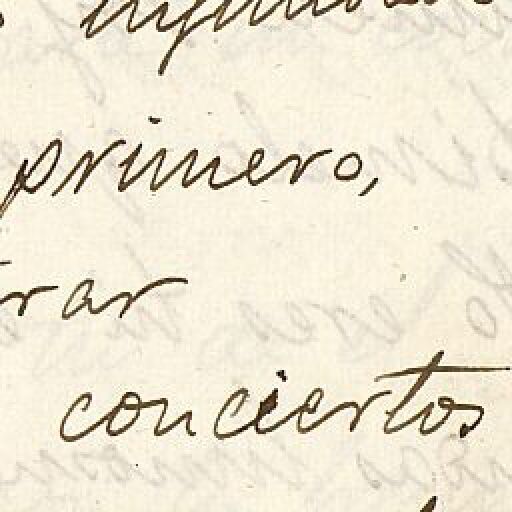 primero,
rar
conciertos